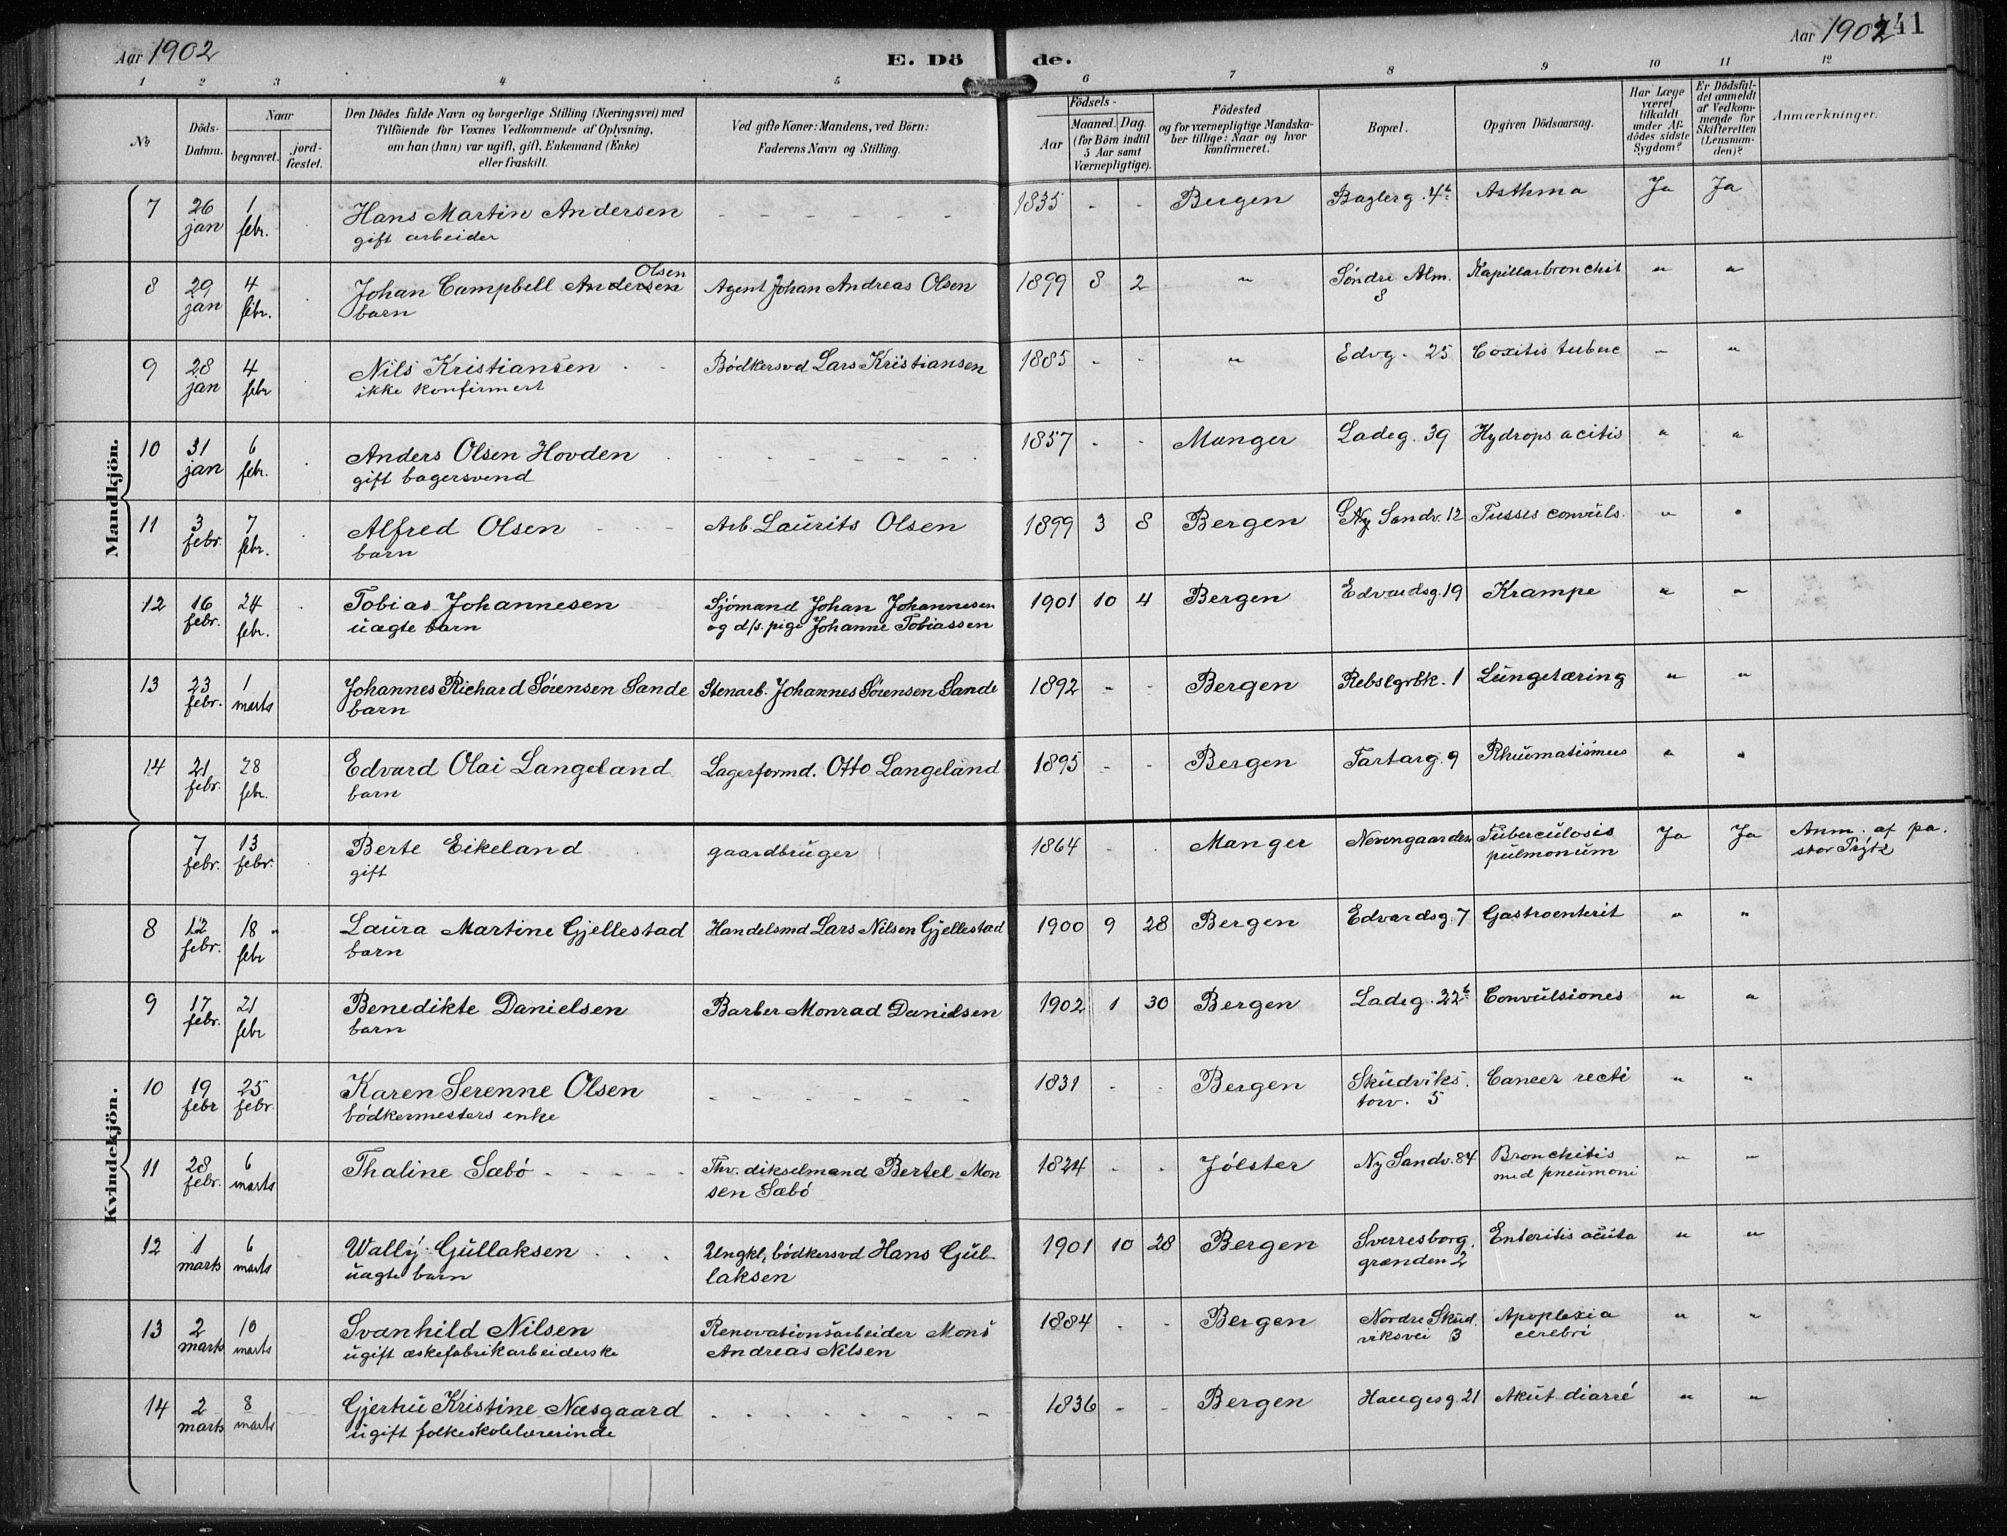 Aar 1902 E. Dö de. Aar 1902 141
1 2 3 4 5 6 7 8 9 10 11 12
No
Döds-Datum.
Naar begravet. jord-fæstet.
Den Dödes fulde Navn og borgerlige Stilling (Næringsvei) med
Tilföiende for Voxnes Vedkommende af Oplysning,
om han (hun) var ugift, gift, Enkemand (Enke)
eller fraskilt.
Ved gifte Koner: Mandens, ved Börn:
Faderens Navn og Stilling.
Födsels-
Aar Maaned. Dag.
(for Börn indtil
5 Aar samt
Værnepligtige).
Födested
og for værnepligtige Mandska-
ber tillige: Naar og hvor
konfirmeret.
Bopæl.
Opgiven Dödsaarsag.
Har Læge
været
tilkaldt
under Af-
dödes sidste
Sygdom?
Er Dödsfal-
det anmeldt
af Vedkom-
mende for
Skifteretten
(Lensman-
den)?
Anmærkninger.
Mandkjön.
7 26 jan 1 febr. Hans Martin Andersen - - - 1835 - - Bergen Baglerg. 4b Asthma Ja Ja
gift arbeider
8 29 jan 4 febr. Johan Campbell Andersen Olsen Agent Johan Andreas Olsen 1899 8 2 " Søndre Alm. 8 Kapillarbronchit " "
barn
9 28 jan 4 febr Nils Kristiansen Bødkersvd Lars Kristiansen 1885 - - " Edvg. 25 Coxitis tuberc " "
ikke konfirmert
10 31 jan 6 febr. Anders Olsen Hovden - - - 1857 - - Manger Ladeg. 39 Hydrops acitis " "
gift bagersvend
11 3 febr. 7 febr. Alfred Olsen Arb. Laurits Olsen 1899 3 8 Bergen Ny Sandv. 12 Tussis convuls. " "
barn
12 16 febr. 24 febr. Tobias Johannesen Sjömand Johan Johannesen 1901 10 4 Bergen Edvardsg. 19 Krampe " "
uægte barn og d/s. pige Johanne Tobiassen
13 23 febr. 1 marts Johannes Richard Sørensen Sande Stenarb. Johannes Sørensen Sande 1892 - - Bergen Rebslgrbk. 1 Lungetæring " "
barn
14 21 febr. 28 febr. Edvard Olai Langeland Lagerformd. Otto Langeland 1895 - - Bergen Tartarg. 9 Rhuematismus " "
barn
Kvindekjön.
7 febr. 13 febr. Berte Eikeland gaardbruger 1864 - - Manger Nevengaarden Tuberculosis pulmonum Ja Ja Anm. af pa-
gift stor Prytz
8 12 febr. 18 febr Laura Martine Gjellestad Handelsmd Lars Nilsen Gjellestad 1900 9 28 Bergen Edvardsg. 7 Gastroenterit " "
barn
9 17 febr. 21 febr Benedikte Danielsen Barber Monrad Danielsen 1902 1 30 Bergen Ladeg. 22b Convulsiones " "
barn
10 19 febr 25 febr. Karen Serenne Olsen - - - 1831 - - Bergen Skudviks. torv. 5 Cancer recti " "
bødkermesters enke
11 28 febr. 6 marts Thaline Sæbö - - - Thv. dikselmand Bertel Mon 1824 - - Jölster Ny Sandv. 84 Bronchitis
sen Sæbö med pneumoni " "
12 1 marts 6 marts Wally Gullaksen Ungkl, bødkersvd Hans Gul- 1901 10 28 Bergen Sverresborg. Enteritis acuta " "
uægte barn laksen grænden 2
13 2 marts 10 marts Svanhild Nilsen Renovationsarbeider Mons 1884 - - Bergen Nordre Skud. Apoplexia " "
ugift æskefabrikarbeiderske Andreas Nilsen viksvei 3 cerebri
14 2 marts 8 marts Gjerthu Kristine Næsgaard - - - 1836 - - Bergen Haugesg. 21 Akut diarré " "
ugift folkeskolelærerinde